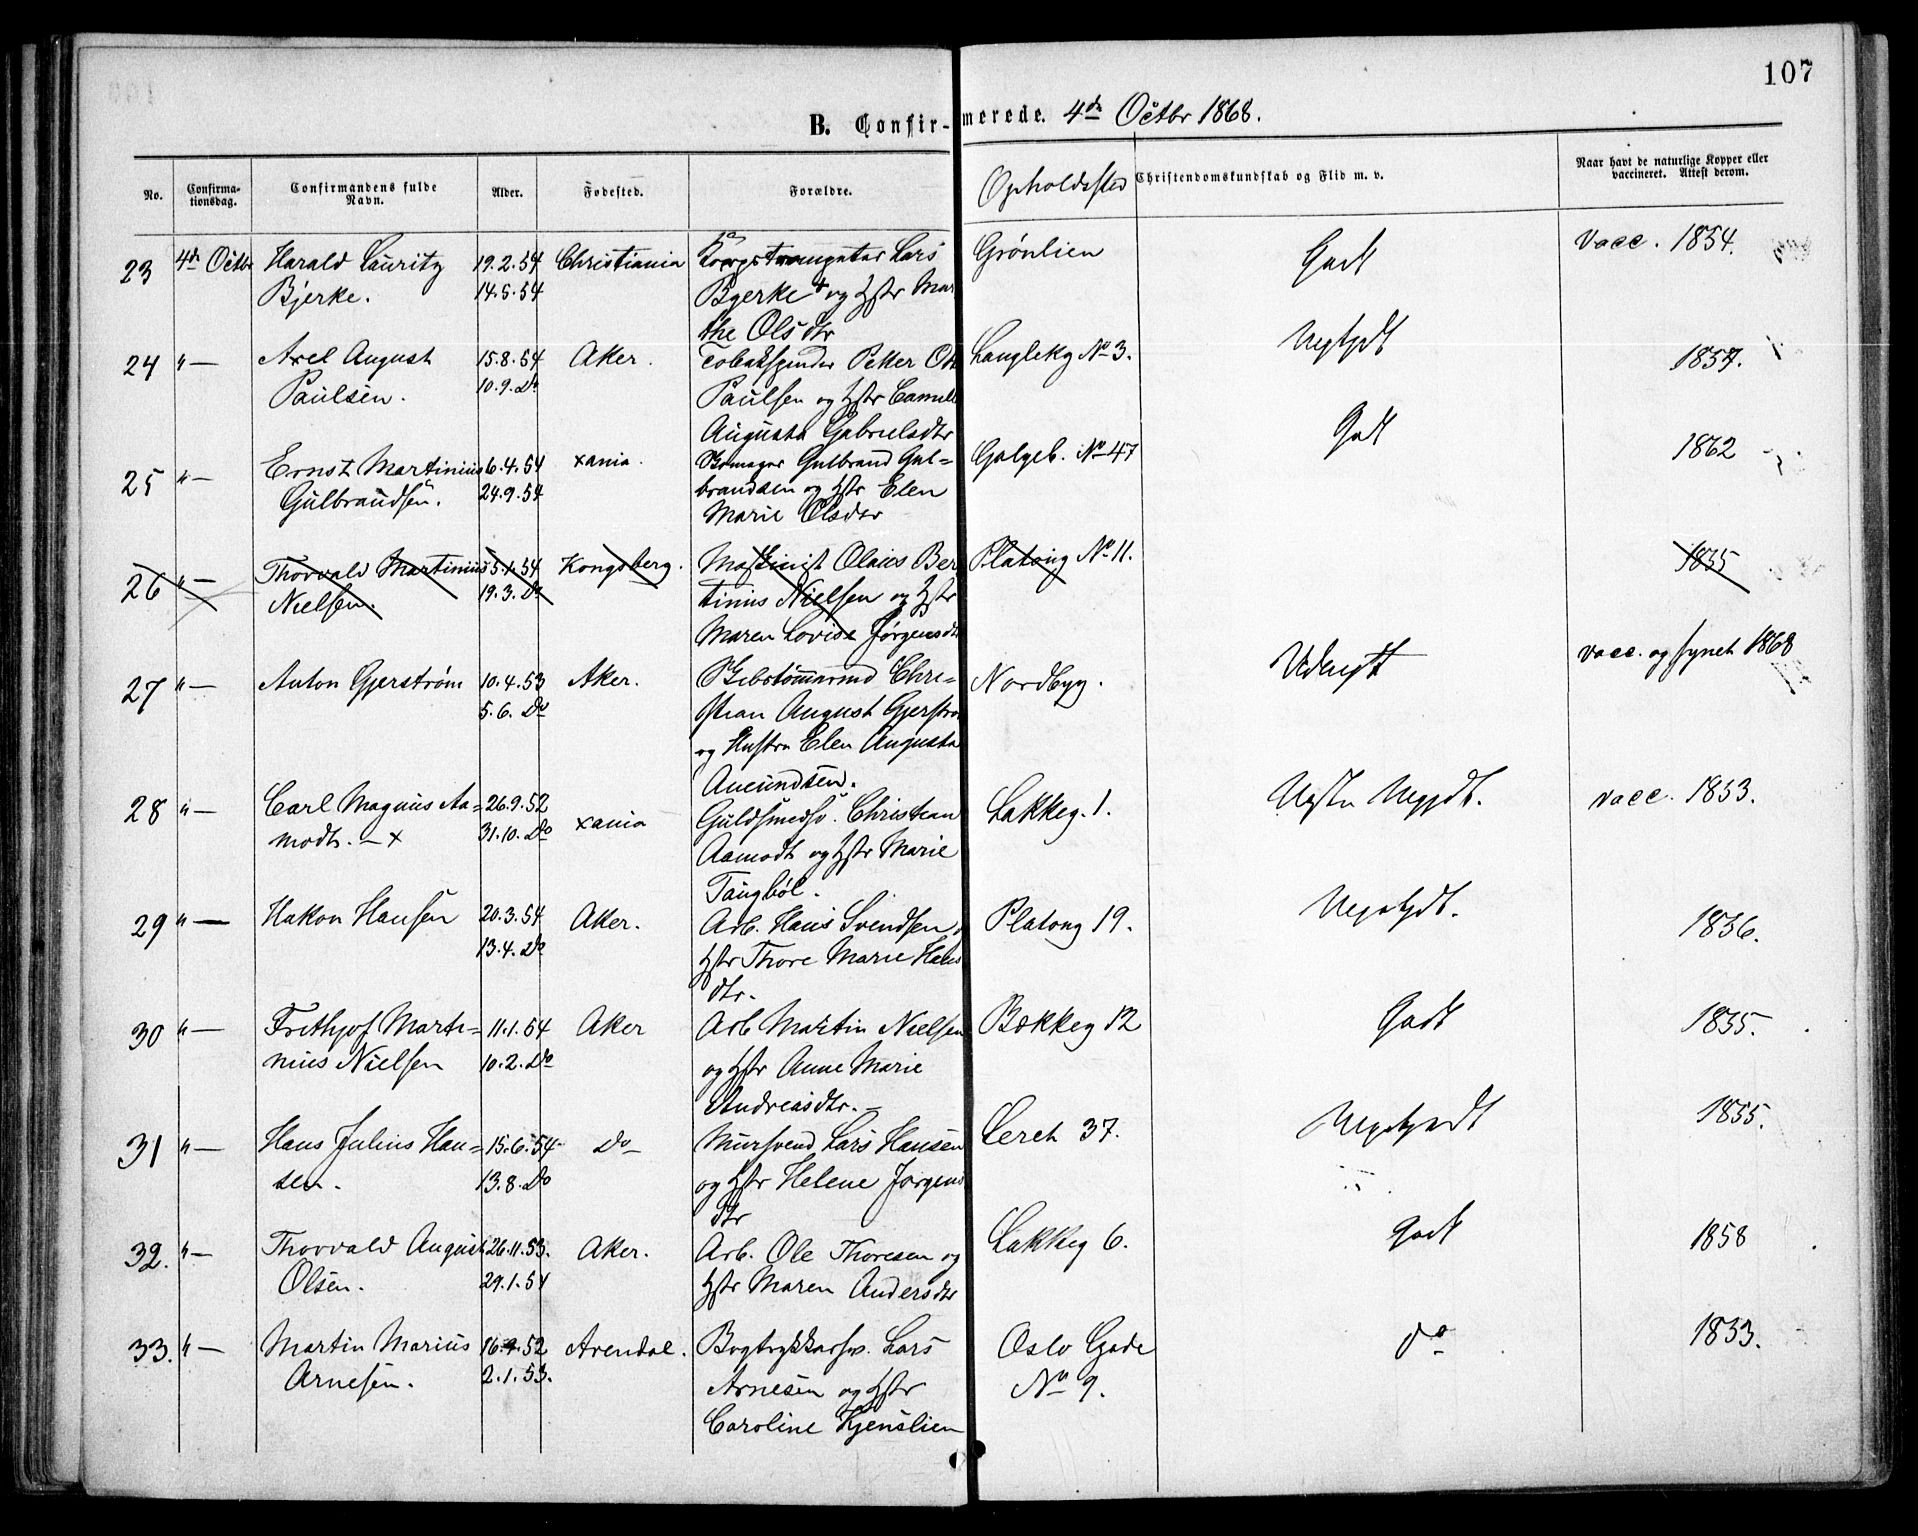 107
B. Confir-merede. 4de Octbr 1868.
No.
Confirma-
tionsdag.
Confirmandens fulde
Navn.
Alder.
Fødested.
Forældre.
Opholdssted
Christendomskundskab og Flid m. v.
Naar havt de naturlige Kopper eller
vaccineret. Attest derom.
23 4de Octbr Harald Lauritz 19.2.54 Christiania Lars Grönlien Godt Vacc. 1854.
Bjerke. 14.5.54 Bjerke og Hstr Mar
the Olsdtr
24 "— Axel August 15.8.54 Aker. Tobaksspinder Petter Langlekg No 3. 1857.
Paulsen. 10.9. Do Paulsen og Hstr
Augusta Gabrielsdtr
25 "— Ernst Martinius 6.4.54 Xania. Gulbrand Gul= Galgeb. No 47 Godt 1862
Gulbrandsen. 24.9.54 brandsen og Hstr Elen
Marie Olsdtr
26 "— Thorvald Martinius 5.1.54 Kongsberg. Maskinist Olaus Ber Platoug No 11. 1855
Nielsen. 19.3. Do tinius Nielsen og Hstr
Maren Lovise Jørgensdtr
27 "— Anton Gjerstrøm 10.4.53 Aker. Chri= Nordbyg. vacc. og synet 1868
5.6. Do stian August Gjerstrøm
og Hustru Elen Augusta
Amundsen.
28 "— Carl Magnus Aa= 26.9.52 Xania Guldsmedsv. Christian Lakkeg. 1. vacc. 1853.
modt. — x 31.10. Do Aamodt og Hstr Marie
Tangböl.
29 "— Hakon Hansen 20.3.54 Aker. Arb. Hans Svendsen Platoug 19. 1856.
13.4. Do Hstr Thore Marie Hans
dtr.
30 "— Frithjof Marti= 11.1.54 Aker Arb Martin Nielsen Bækkeg 12 Godt 1855.
nius Nielsen 10.2. Do og Hstr Anne Marie
Andreasdtr. —
31 "— Hans Julius Han= 15.6.54 Do Mursvend Lars Hansen Lerch 37. 1855.
sen. 13.8. Do og Hstr Helene Jørgens
dtr
32. "— Thorvald August 26.11.53. Aker. Arb. Ole Thoresen og Lakkeg 6. Godt 1858
Olsen. 29.1.54 Hstr Maren Andersdtr
33. "— Martin Marius 16.9.52 Arendal. Bogtrykkersv. Lars Oslo Gade do 1853.
Arnesen. 2.1.53. Arnesen og Hstr No 9.
Caroline Kjenslien